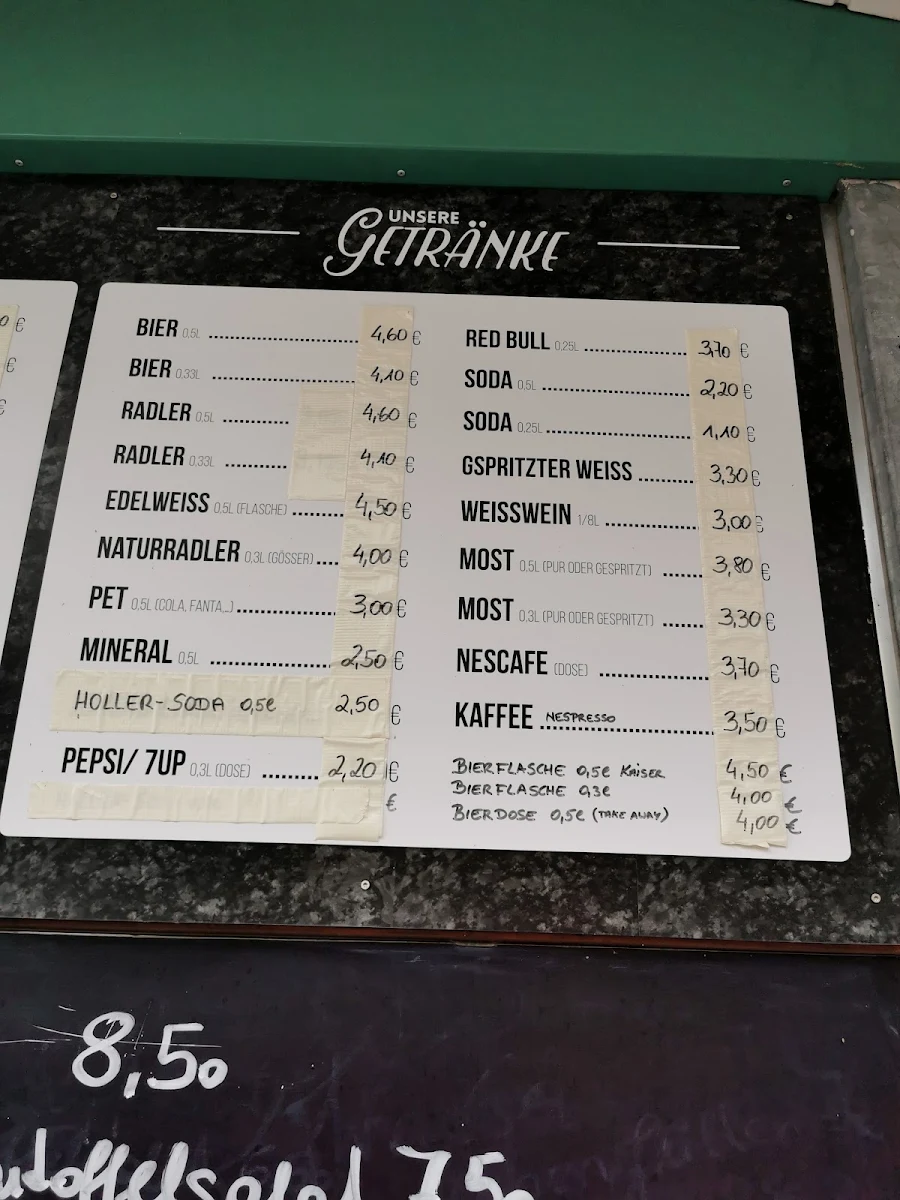 UNSERE
GETRÄNKE
BIER 0,5L 4,60 €
BIER 0,33L 4,10 €
RADLER 0,5L 4,60 €
RADLER 0,33L 4,10 €
EDELWEISS 0,5L (FLASCHE) 4,50 €
NATURRADLER 0,3L (GÖSSER) 4,00 €
PET 0,5L (COLA, FANTA...) 3,00 €
MINERAL 0,5L 2,50 €
HOLLER-SODA 0,5l 2,50 €
PEPSI/ 7UP 0,3L (DOSE) 2,20 €
€
RED BULL 0,25L 3,70 €
SODA 0,5L 2,20 €
SODA 0,25L 1,10 €
GSPRITZTER WEISS 3,30 €
WEISSWEIN 1/8L 3,00 €
MOST 0,5L (PUR ODER GESPRITZT) 3,80 €
MOST 0,3L (PUR ODER GESPRITZT) 3,30 €
NESCAFE (DOSE) 3,70 €
KAFFEE NESPRESSO 3,50 €
BIERFLASCHE 0,5l KAISER 4,50 €
BIERFLASCHE 0,3l 4,00 €
BIERDOSE 0,5l (TAKE AWAY) 4,00 €
8,50